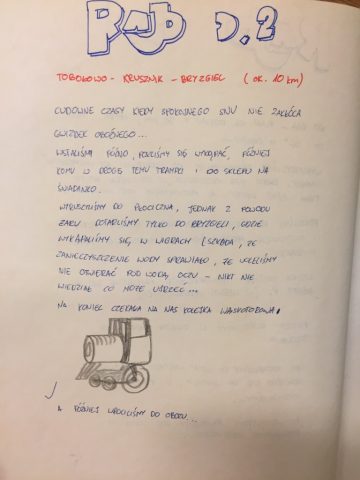 RAJD D.2
TOBOŁOWO - KRUSZNIK - BRYZGIEL (OK. 10 km)
CUDOWNE CZASY KIEDY SPOKOJNEGO SNU NIE ZAKŁÓCA
GWIZDEK OBOŹNEGO...
WSTALIŚMY PÓŹNO, POSZLIŚMY SIĘ WYKĄPAĆ, PÓŹNIEJ
KOMU W DROGĘ TEMU TRAMPKI I DO SKLEPU NA
ŚNIADANKO.
WYRUSZYLIŚMY DO PŁOCICZNA, JEDNAK Z POWODU
ŻARU DOTARLIŚMY TYLKO DO BRYZGIELA, GDZIE
WYKĄPALIŚMY SIĘ W WIGRACH (SZKODA, ŻE
ZANIECZYSZCZENIE WODY SPRAWIAŁO, ŻE WOLELIŚMY
NIE OTWIERAĆ POD WODĄ OCZU - NIKT NIE
WIEDZIAŁ CO MOŻE UJRZEĆ...
NA KONIEC CZEKAŁA NA NAS KOLEJKA WĄSKOTOROWA!
A PÓŹNIEJ WRÓCILIŚMY DO OBOZU...